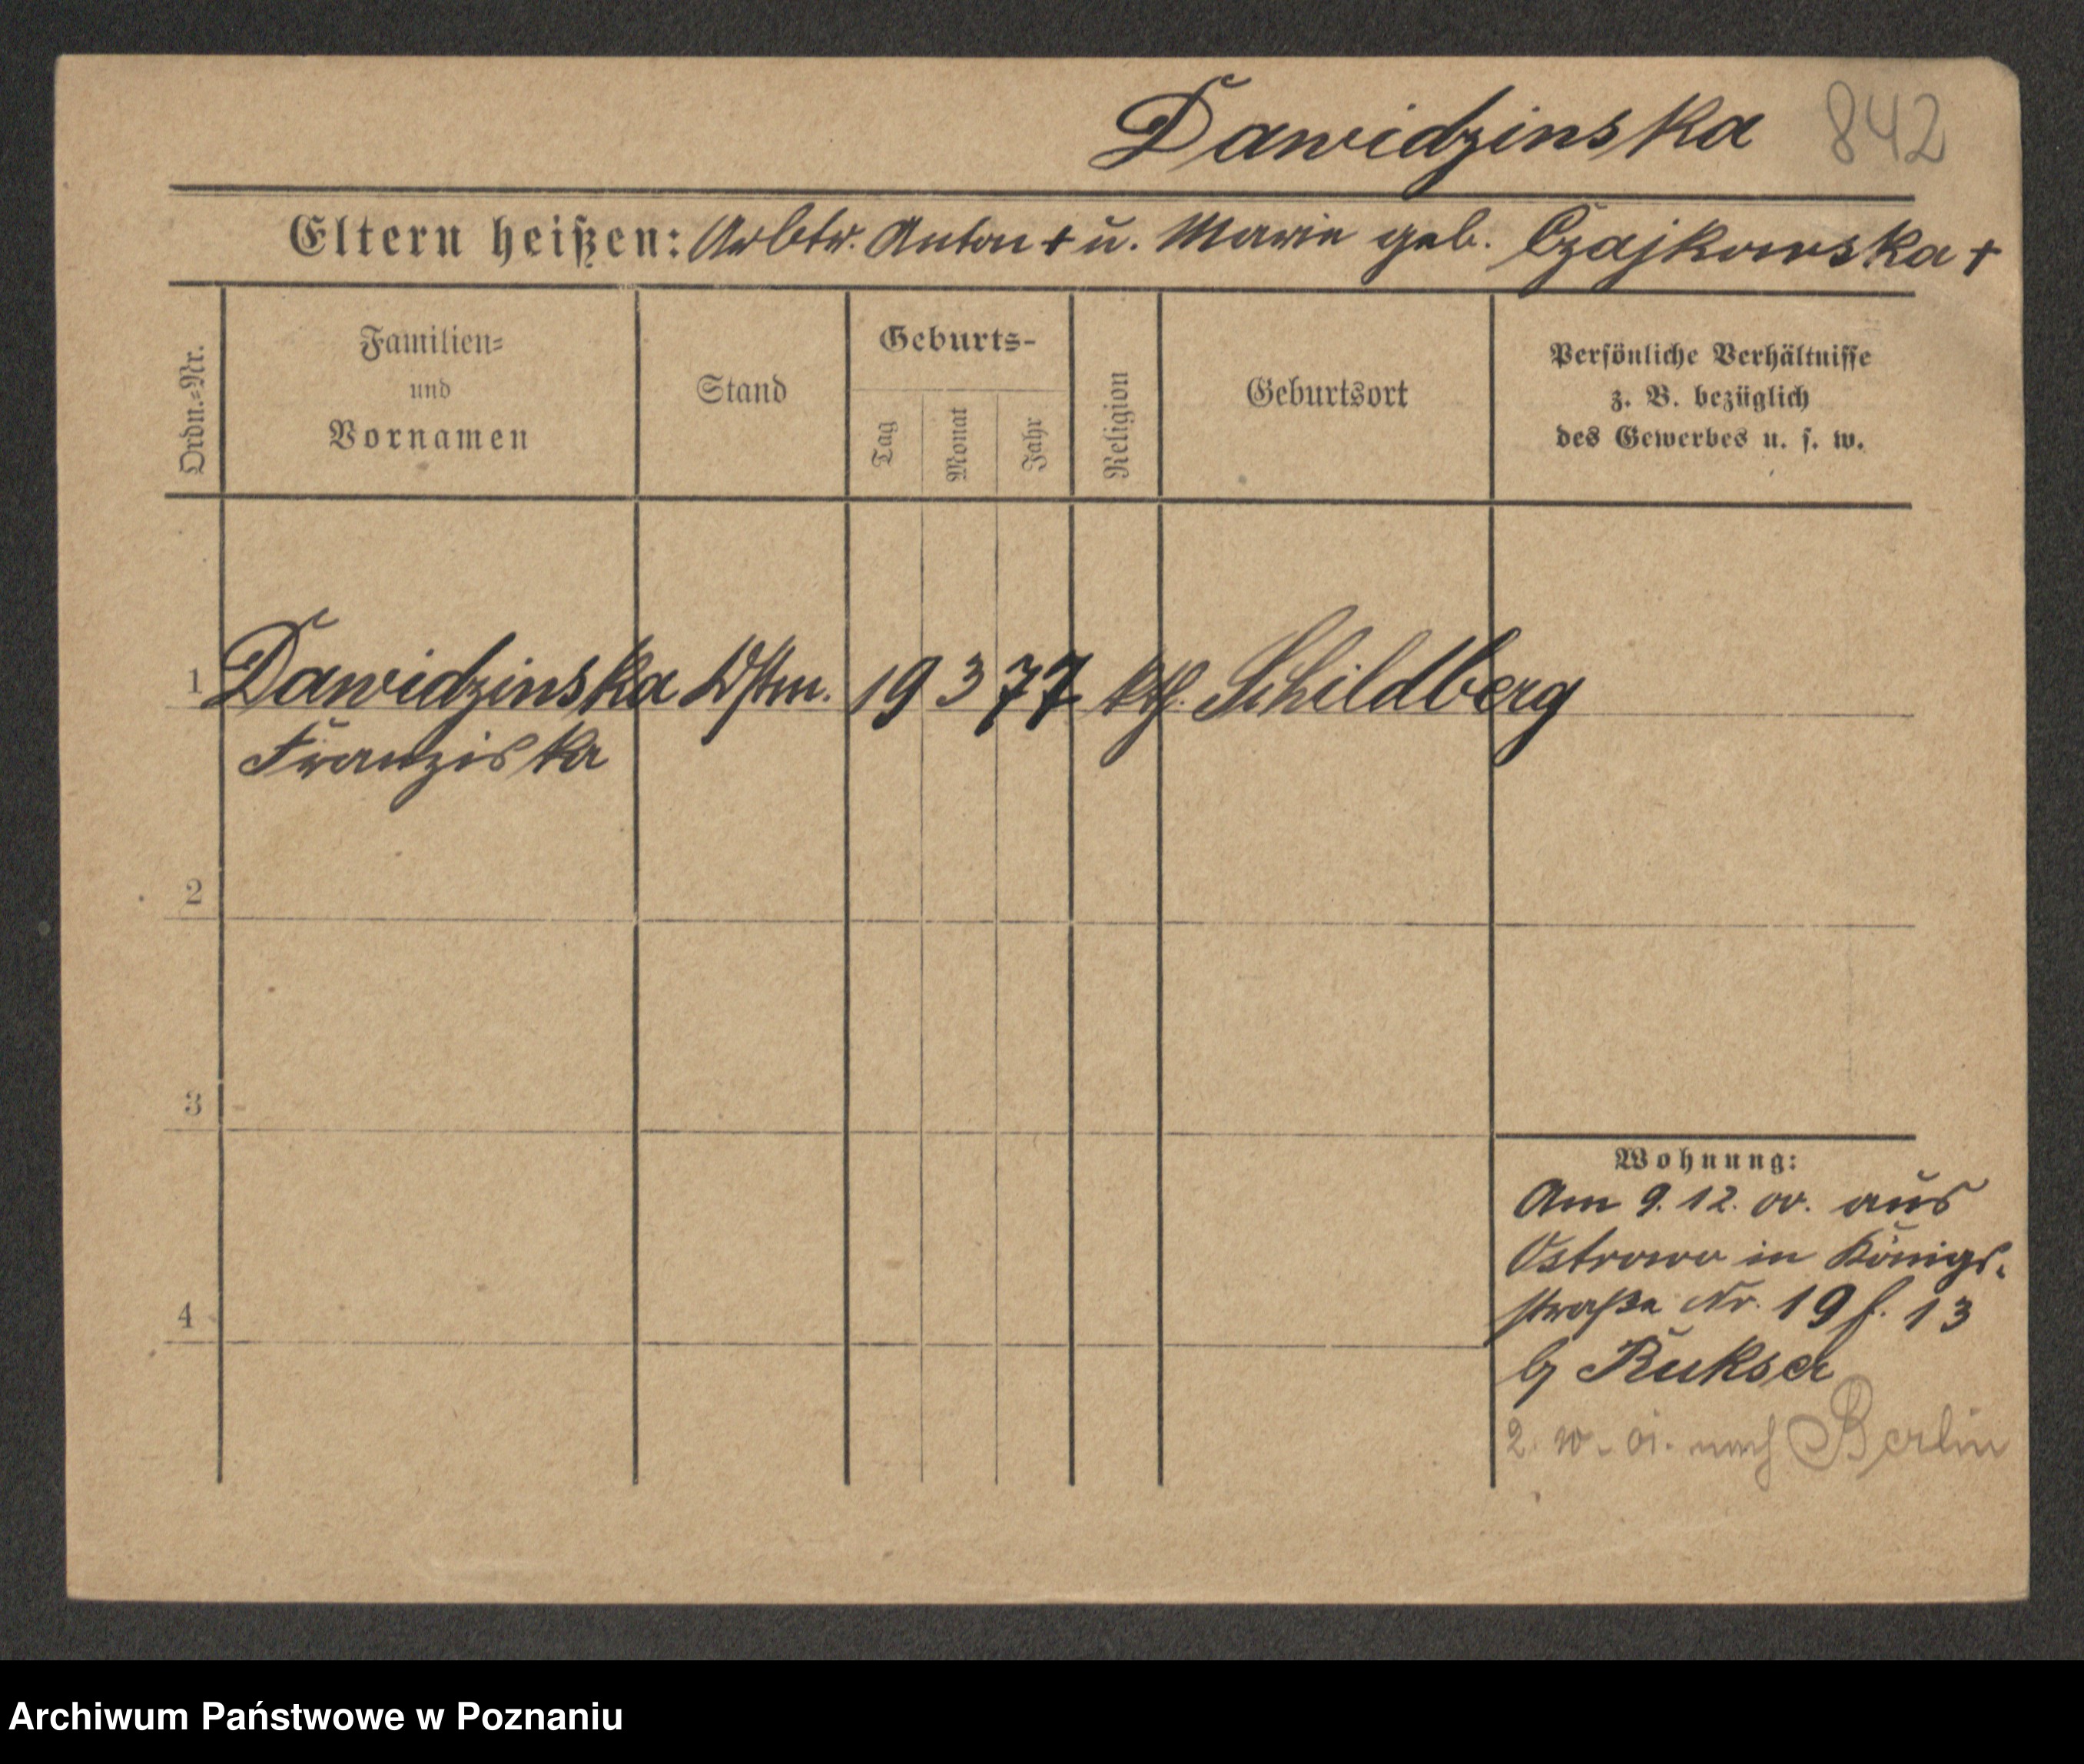 Dawidzinska 842
Eltern heißen: Arbtr. Anton + u. Marie geb. Czajkowska +
Ordn.-Nr.
Familien-
und
Vornamen
Stand
Geburts-
Tag
Monat
Jahr
Religion
Geburtsort
Persönliche Verhältnisse
z. B. bezüglich
des Gewerbes u. s. w.
1 Dawidzinska Dstm. 19 3 77 kth. Schildberg
Franziska
2
3
4
Wohnung:
Am 9. 12. 00. aus
Ostrowo in Königs-
straße Nr. 19 f. 13
b/ Ruksch
2. 10. 01. nach Berlin
Archiwum Państwowe w Poznaniu